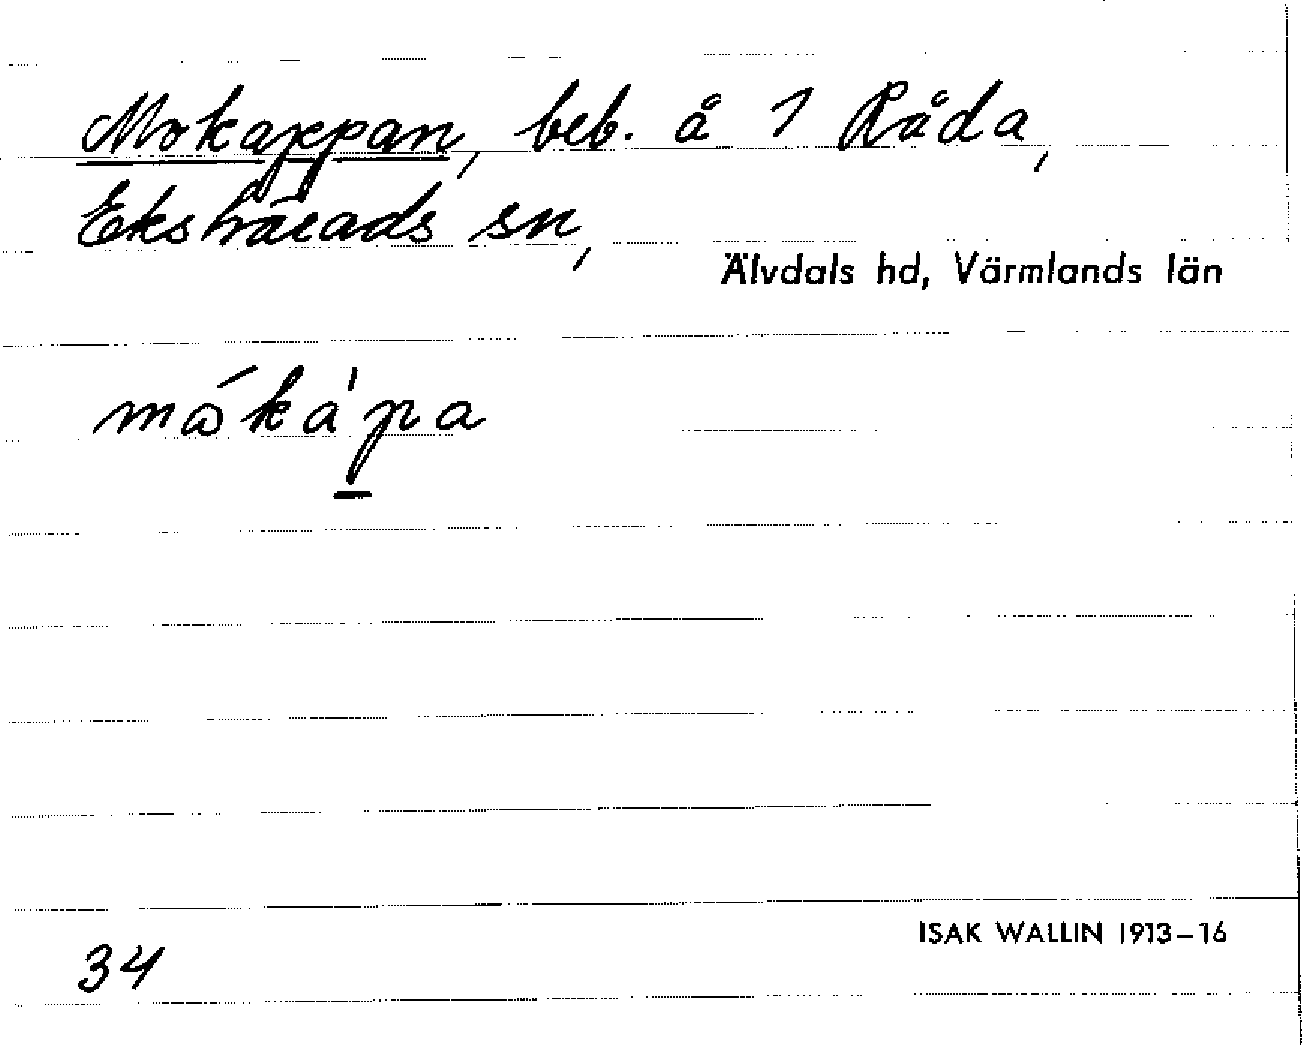 Mokappan, beb. å 1 Råda,
Ekshärads sn,
Älvdals hd, Värmlands län
måkapa
34
ISAK WALLIN 1913–16